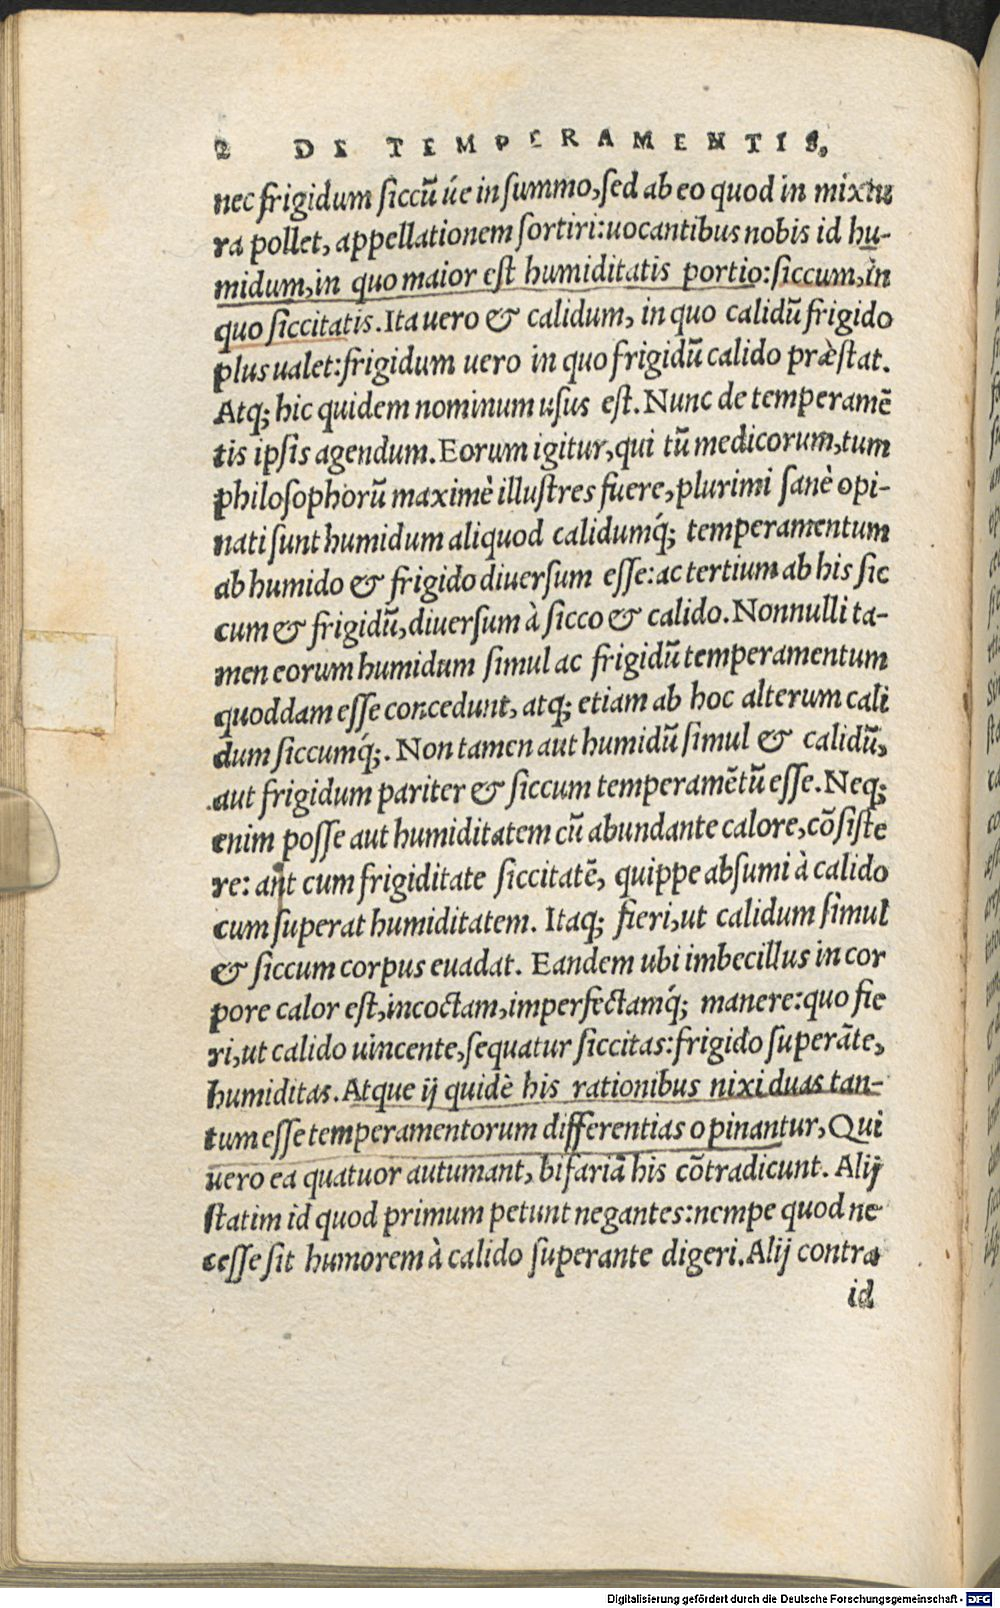 2 DE TEMPERAMENTIS,
nec frigidum siccũ úe in summo, sed ab eo quod in mixtu
ra pollet, appellationem sortiri: uocantibus nobis id hu-
midum, in quo maior est humiditatis portio: siccum, in
quo siccitatis. Ita uero & calidum, in quo calidũ frigido
plus ualet: frigidum uero in quo frigidũ calido præstat.
Atq; hic quidem nominum usus est. Nunc de temperamẽ
tis ipsis agendum. Eorum igitur, qui tũ medicorum, tum
philosophorũ maximè illustres fuere, plurimi sanè opi-
nati sunt humidum aliquod calidumq́; temperamentum
ab humido & frigido diuersum esse: ac tertium ab his sic
cum & frigidũ, diuersum à sicco & calido. Nonnulli ta-
men eorum humidum simul ac frigidũ temperamentum
quoddam esse concedunt, atq; etiam ab hoc alterum cali
dum siccumq́;. Non tamen aut humidũ simul & calidũ,
aut frigidum pariter & siccum temperamẽtũ esse. Neq;
enim posse aut humiditatem cũ abundante calore, cõsiste
re: aut cum frigiditate siccitatẽ, quippe absumi à calido
cum superat humiditatem. Itaq; fieri, ut calidum simul
& siccum corpus euadat. Eandem ubi imbecillus in cor
pore calor est, incoctam, imperfectamq́; manere: quo fie
ri, ut calido uincente, sequatur siccitas: frigido superãte,
humiditas. Atque ij quidẽ his rationibus nixi duas tan-
tum esse temperamentorum differentias opinantur, Qui
uero ea quatuor autumant, bifariã his cõtradicunt. Alij
statim id quod primum petunt negantes: nempe quod ne
cesse sit humorem à calido superante digeri. Alij contra
id
Digitalisierung gefördert durch die Deutsche Forschungsgemeinschaft - DFG